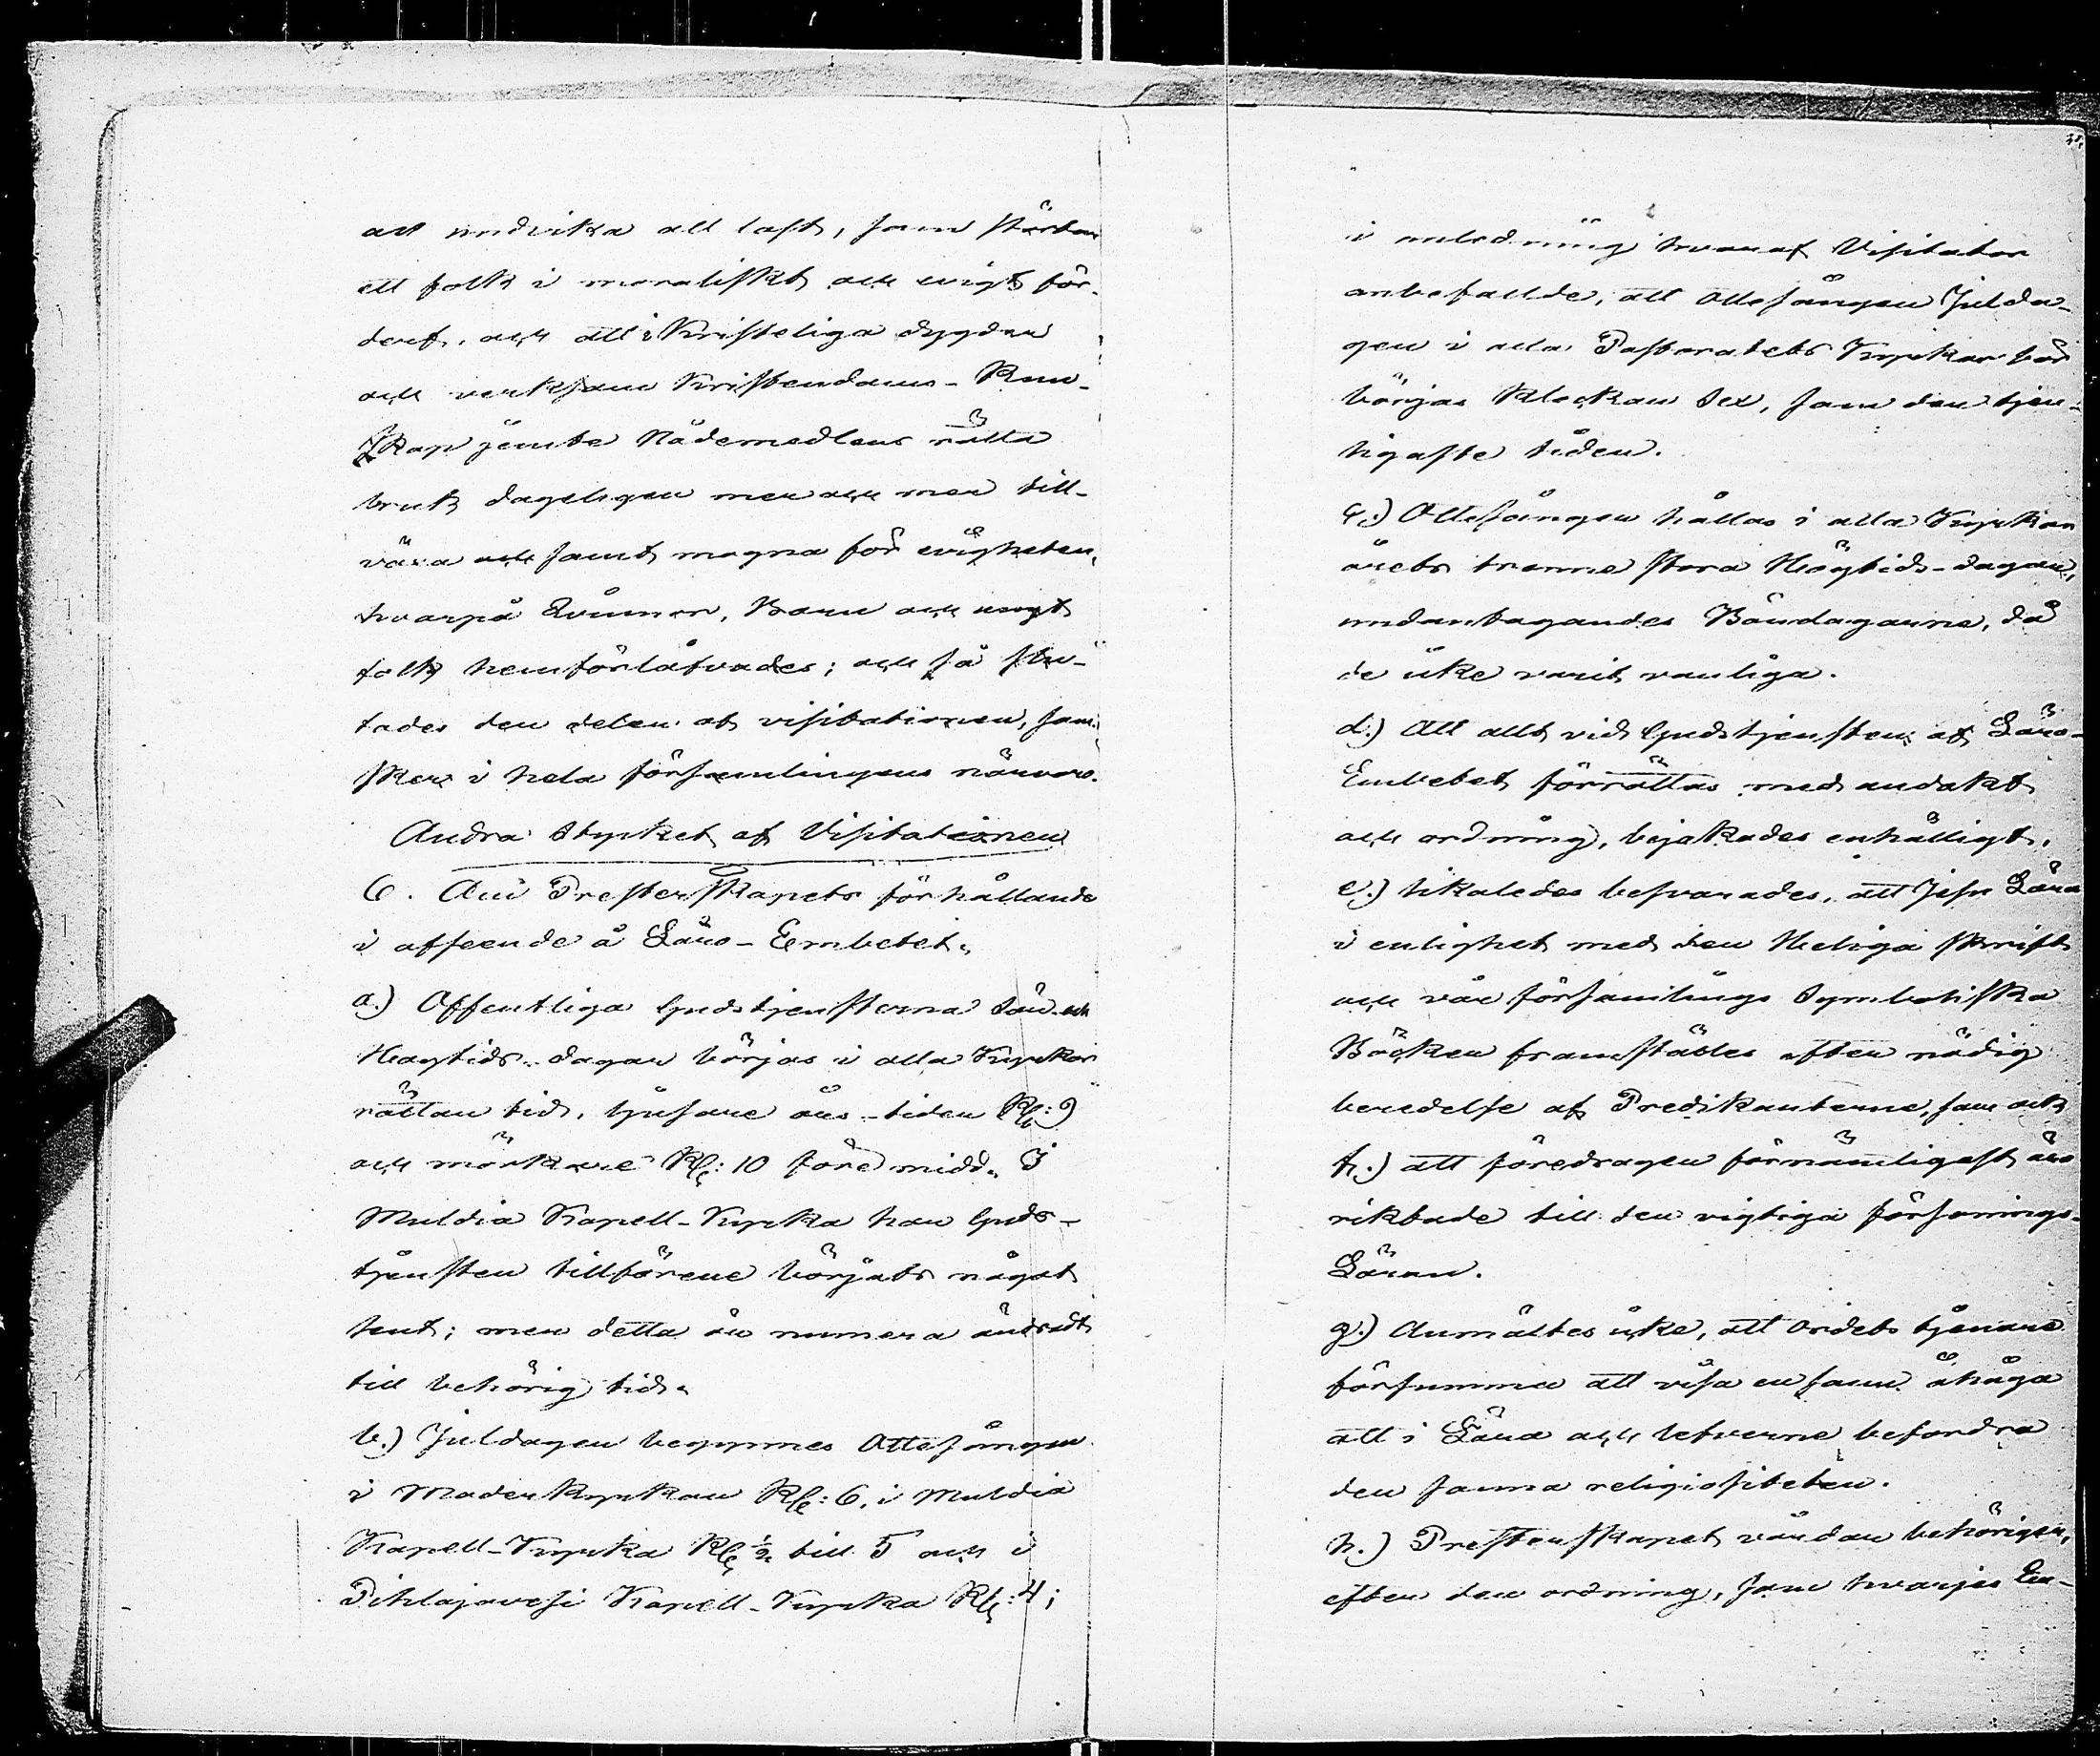 att undvika all last, som störtar
ett folk i moraliskt och evigt för-
derf, och att i Kristeliga dygder
och verksam Kristendoms-Kun-
skap jemte Nådemedlens rätta
bruk dageligen mer och mer till-
växa och samt mogna för evigheten,
hvarpå Qvinnor, Barn och ungt
folk hemförlåfvades; och så slu-
tades den delen af visitationen, som
sker i hela församlingens närvaro.
Andra Stycket af Visitationen
6. Om Presterskapets förhållande
i afseende å Läro-Embetet.
a.) Offentliga Gudstjensterna Sön- och
Högtids-dagar börjas i alla Kyrkor
rättan tid, ljusare års-tiden Kl: 9
och mörkare Kl: 10 före midd. I
Muldia Kapell-Kyrka har Guds-
tjensten tillförene börjats något
sent; men detta är numera ändradt
till behörig tid.
b.) Juldagen begynnes Ottesången
i Moderkyrkan Kl: 6, i Muldia
Kapell-Kyrka Kl ½ till 5 och i
Pihlajavesi Kapell-Kyrka Kl: 4;
i anledning hvaraf Visitator
anbefallde, att Ottesången Julda-
gen i alla Pastoratets Kyrkor bör
börjas Klockan Sex, som den tjen-
ligaste tiden.
c.) Ottesången hålles i alla Kyrkor
årets tvenne stora Högtids-dagar,
undantagandes Böndagarne, då
de icke varit vanliga.
d.) Att allt vid Gudstjensten af Läro-
Embetet förrättas med andakt
och ordning, bejakades enhälligt.
e.) likaledes besvarades, att Jesu Lära
i enlighet med den Heliga skrift
och vår församlings Symboliska
Böcker framställes efter nödig
beredelse af Predikanterne, som ock
f.) att föredragen förnämligast äro
riktade till den vigtiga försonings-
Läran.
g.) Anmältes icke, att Ordets tjenare
försumma att visa en sann åhåga
att i Lära och lefverne befordra
den sanna religiositeten.
h.) Presterskapet vårdar behörigen,
efter den ordning, som hvarjes Em-